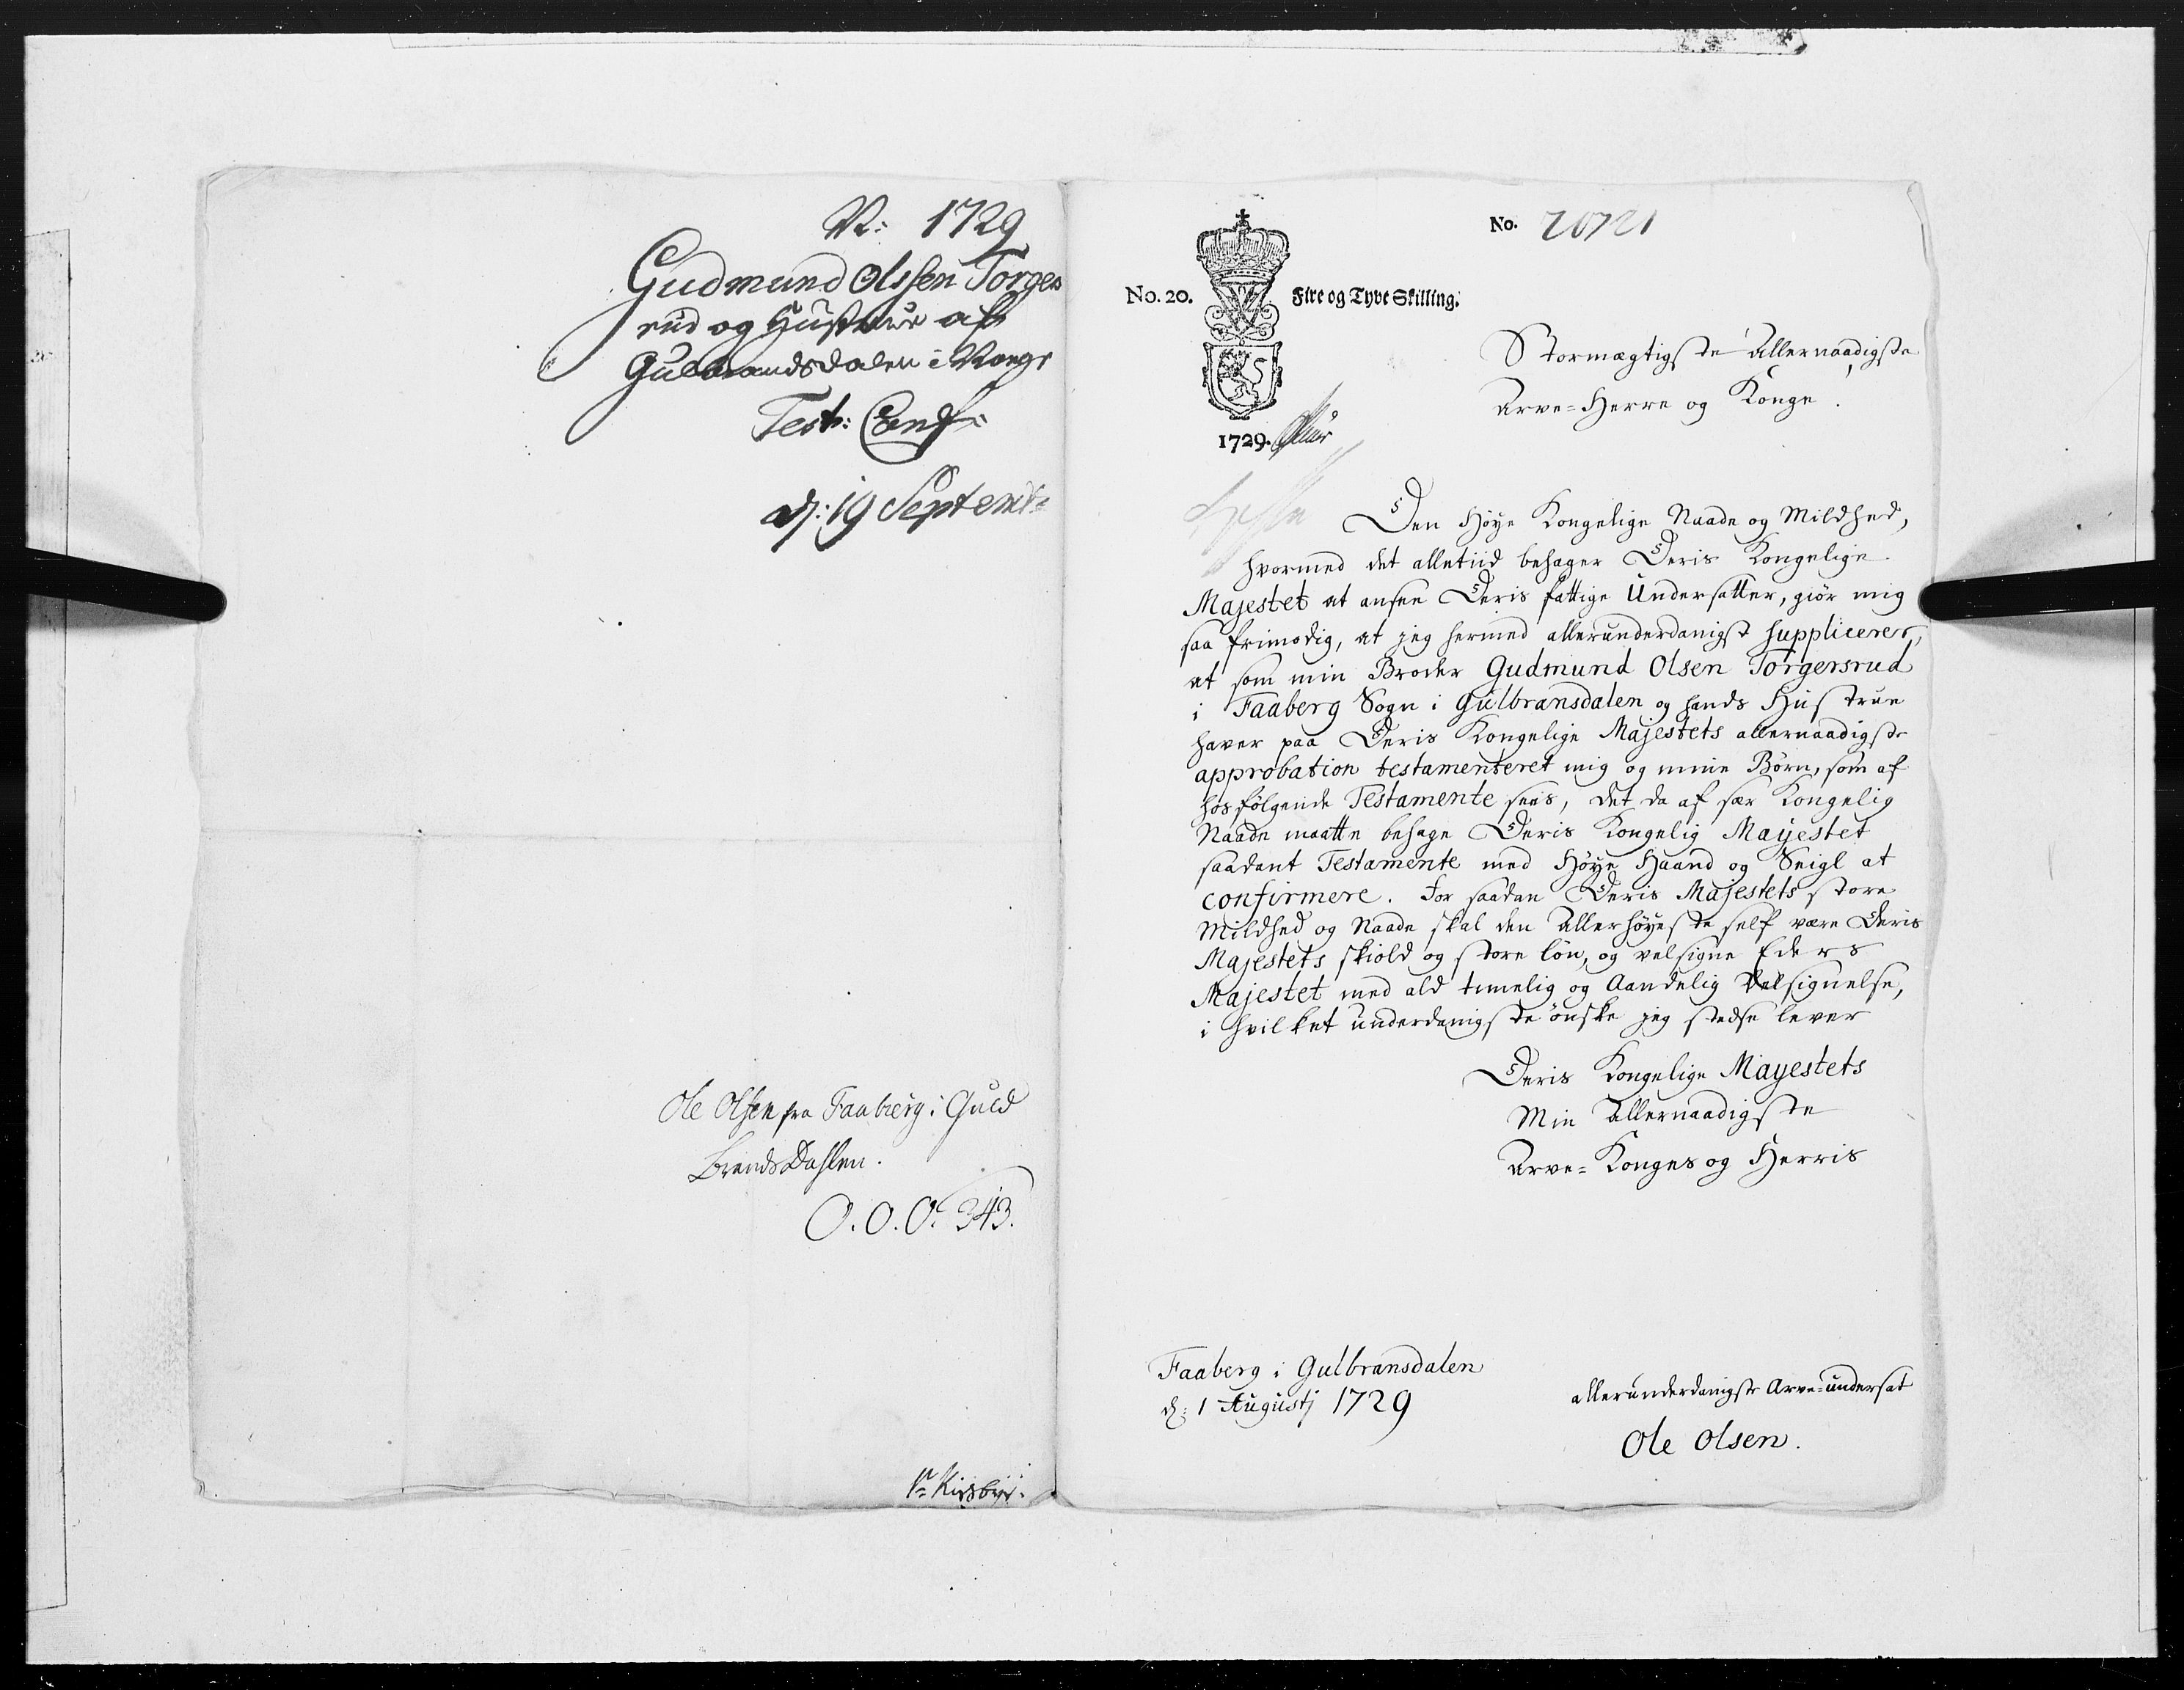 N: 1729
Gudmund Olssen Torgers
rud og Hustrue af
Gulbrandsdalen i Norge
Test: Conf:
d: 19 Septemb:
Ole Olsen fra Faaberg i Guld
brands Dahlen.
O.O.O. 343.
No. 20721
No. 20. Fire og Tyve Skilling.
1729.
Stormægtigste Allernaadigste
Arve-Herre og Konge!
Den Høye Kongelige Naade og Mildhed,
hvormed det alletiid behager Deris Kongelige
Majestet at ansee Deris fattige Undersatter, giør mig
saa frimodig, at jeg hermed allerunderdanigst supplicerer,
at som min Broder Gudmund Olsen Torgersrud
i Faaberg Sogn i Gulbransdalen og hands Hustrue
haver paa Deris Kongelige Majestets allernaadigste
approbation testamenteret mig og mine Børn, som af
hosfølgende Testamente sees, det da af sær Kongelig
Naade maatte behage Deris Kongelig Mayestet
saadant Testamente med Høye Haand og Seigl at
confirmere. For saadan Deris Majestets store
Mildhed og Naade skal den Allerhøyeste self være Deris
Majestets skiold og store løn, og velsigne Eders
Majestet med ald timelig og Aandelig Velsignelse,
i hvilket underdanigste ønske jeg stedse lever
Deris Kongelige Mayestets
Min Allernaadigste
Arve-Konges og Herris
Faaberg i Gulbransdalen
d: 1 Augustj 1729
allerunderdanigste Arve-undersat
Ole Olsen.